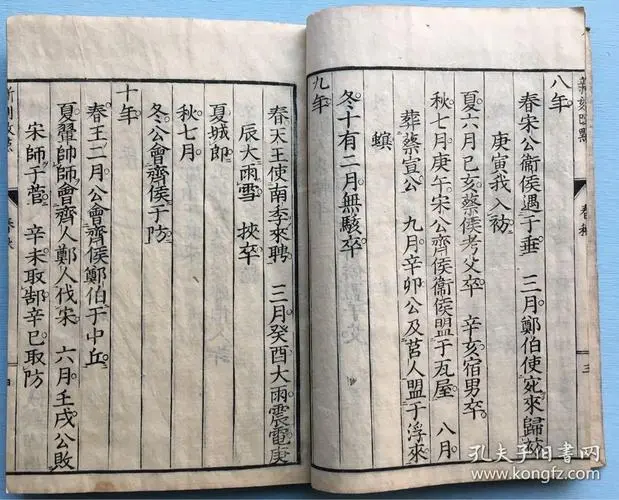 新刻改點 春秋 三
八年
春宋公衞侯遇于垂 三月鄭伯使宛來歸祊
庚寅我入祊
夏六月己亥蔡侯考父卒 辛亥宿男卒
秋七月庚午宋公齊侯衞侯盟于瓦屋 八月
葬蔡宣公 九月辛卯公及莒人盟于浮來
螟
冬十有二月無駭卒
九年
春天王使南季來聘 三月癸酉大雨震電庚
辰大雨雪 挾卒
夏城郎
秋七月
冬公會齊侯于防
十年
春王二月公會齊侯鄭伯于中丘
夏翬帥師會齊人鄭人伐宋 六月壬戌公敗
宋師于菅 辛未取郜辛巳取防
春秋 四
孔夫子旧书网
www.kongfz.com